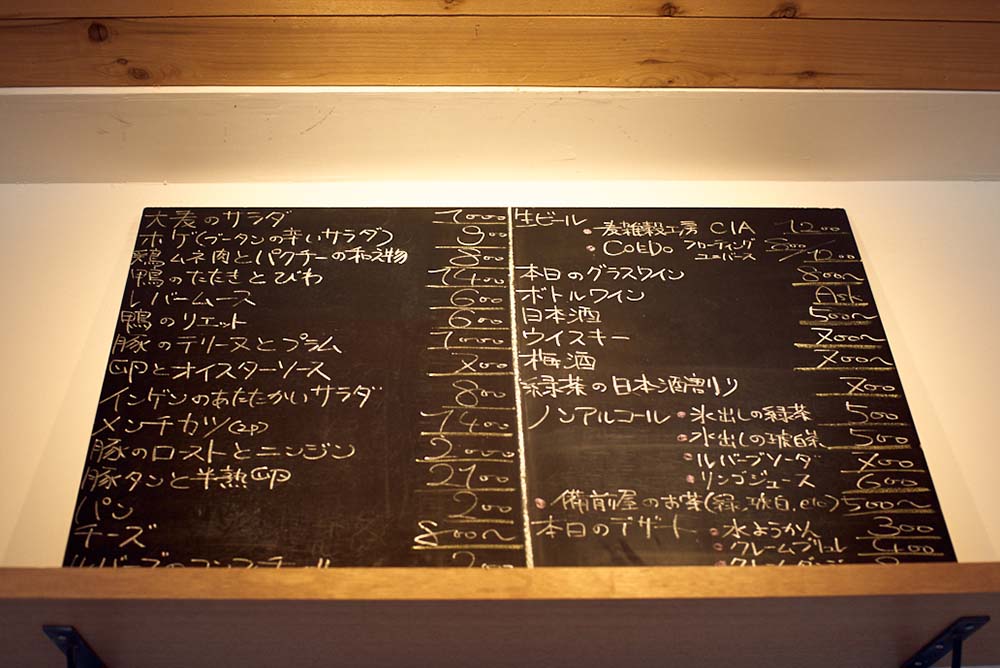 大麦のサラダ 1000
ホゲ(ブータンの辛いサラダ) 900
鶏ムネ肉とパクチーの和え物 800
鴨のたたきとびわ 1400
レバームース 600
鴨のリエット 600
豚のテリーヌとプラム 1000
卵とオイスターソース
インゲンのあたたかいサラダ 800
メンチカツ(2P) 1400
豚のローストとニンジン 2000
豚タンと半熟卵
パン 200
チーズ 800〜
生ビール
・麦雑穀工房 CIA 1200
・COEDO フローティングユニバース 800/1200
本日のグラスワイン 800〜
ボトルワイン Ask
日本酒 500〜
ウイスキー 700〜
梅酒 700〜
緑茶の日本酒割り 700
ノンアルコール ・氷出しの緑茶 500
・氷出しの琥白茶 500
・ルバーブソーダ 700
・リンゴジュース 600
・備前屋のお茶(緑,琥白,etc) 500〜
本日のデザート ・水ようかん 300
・クレームブリュレ